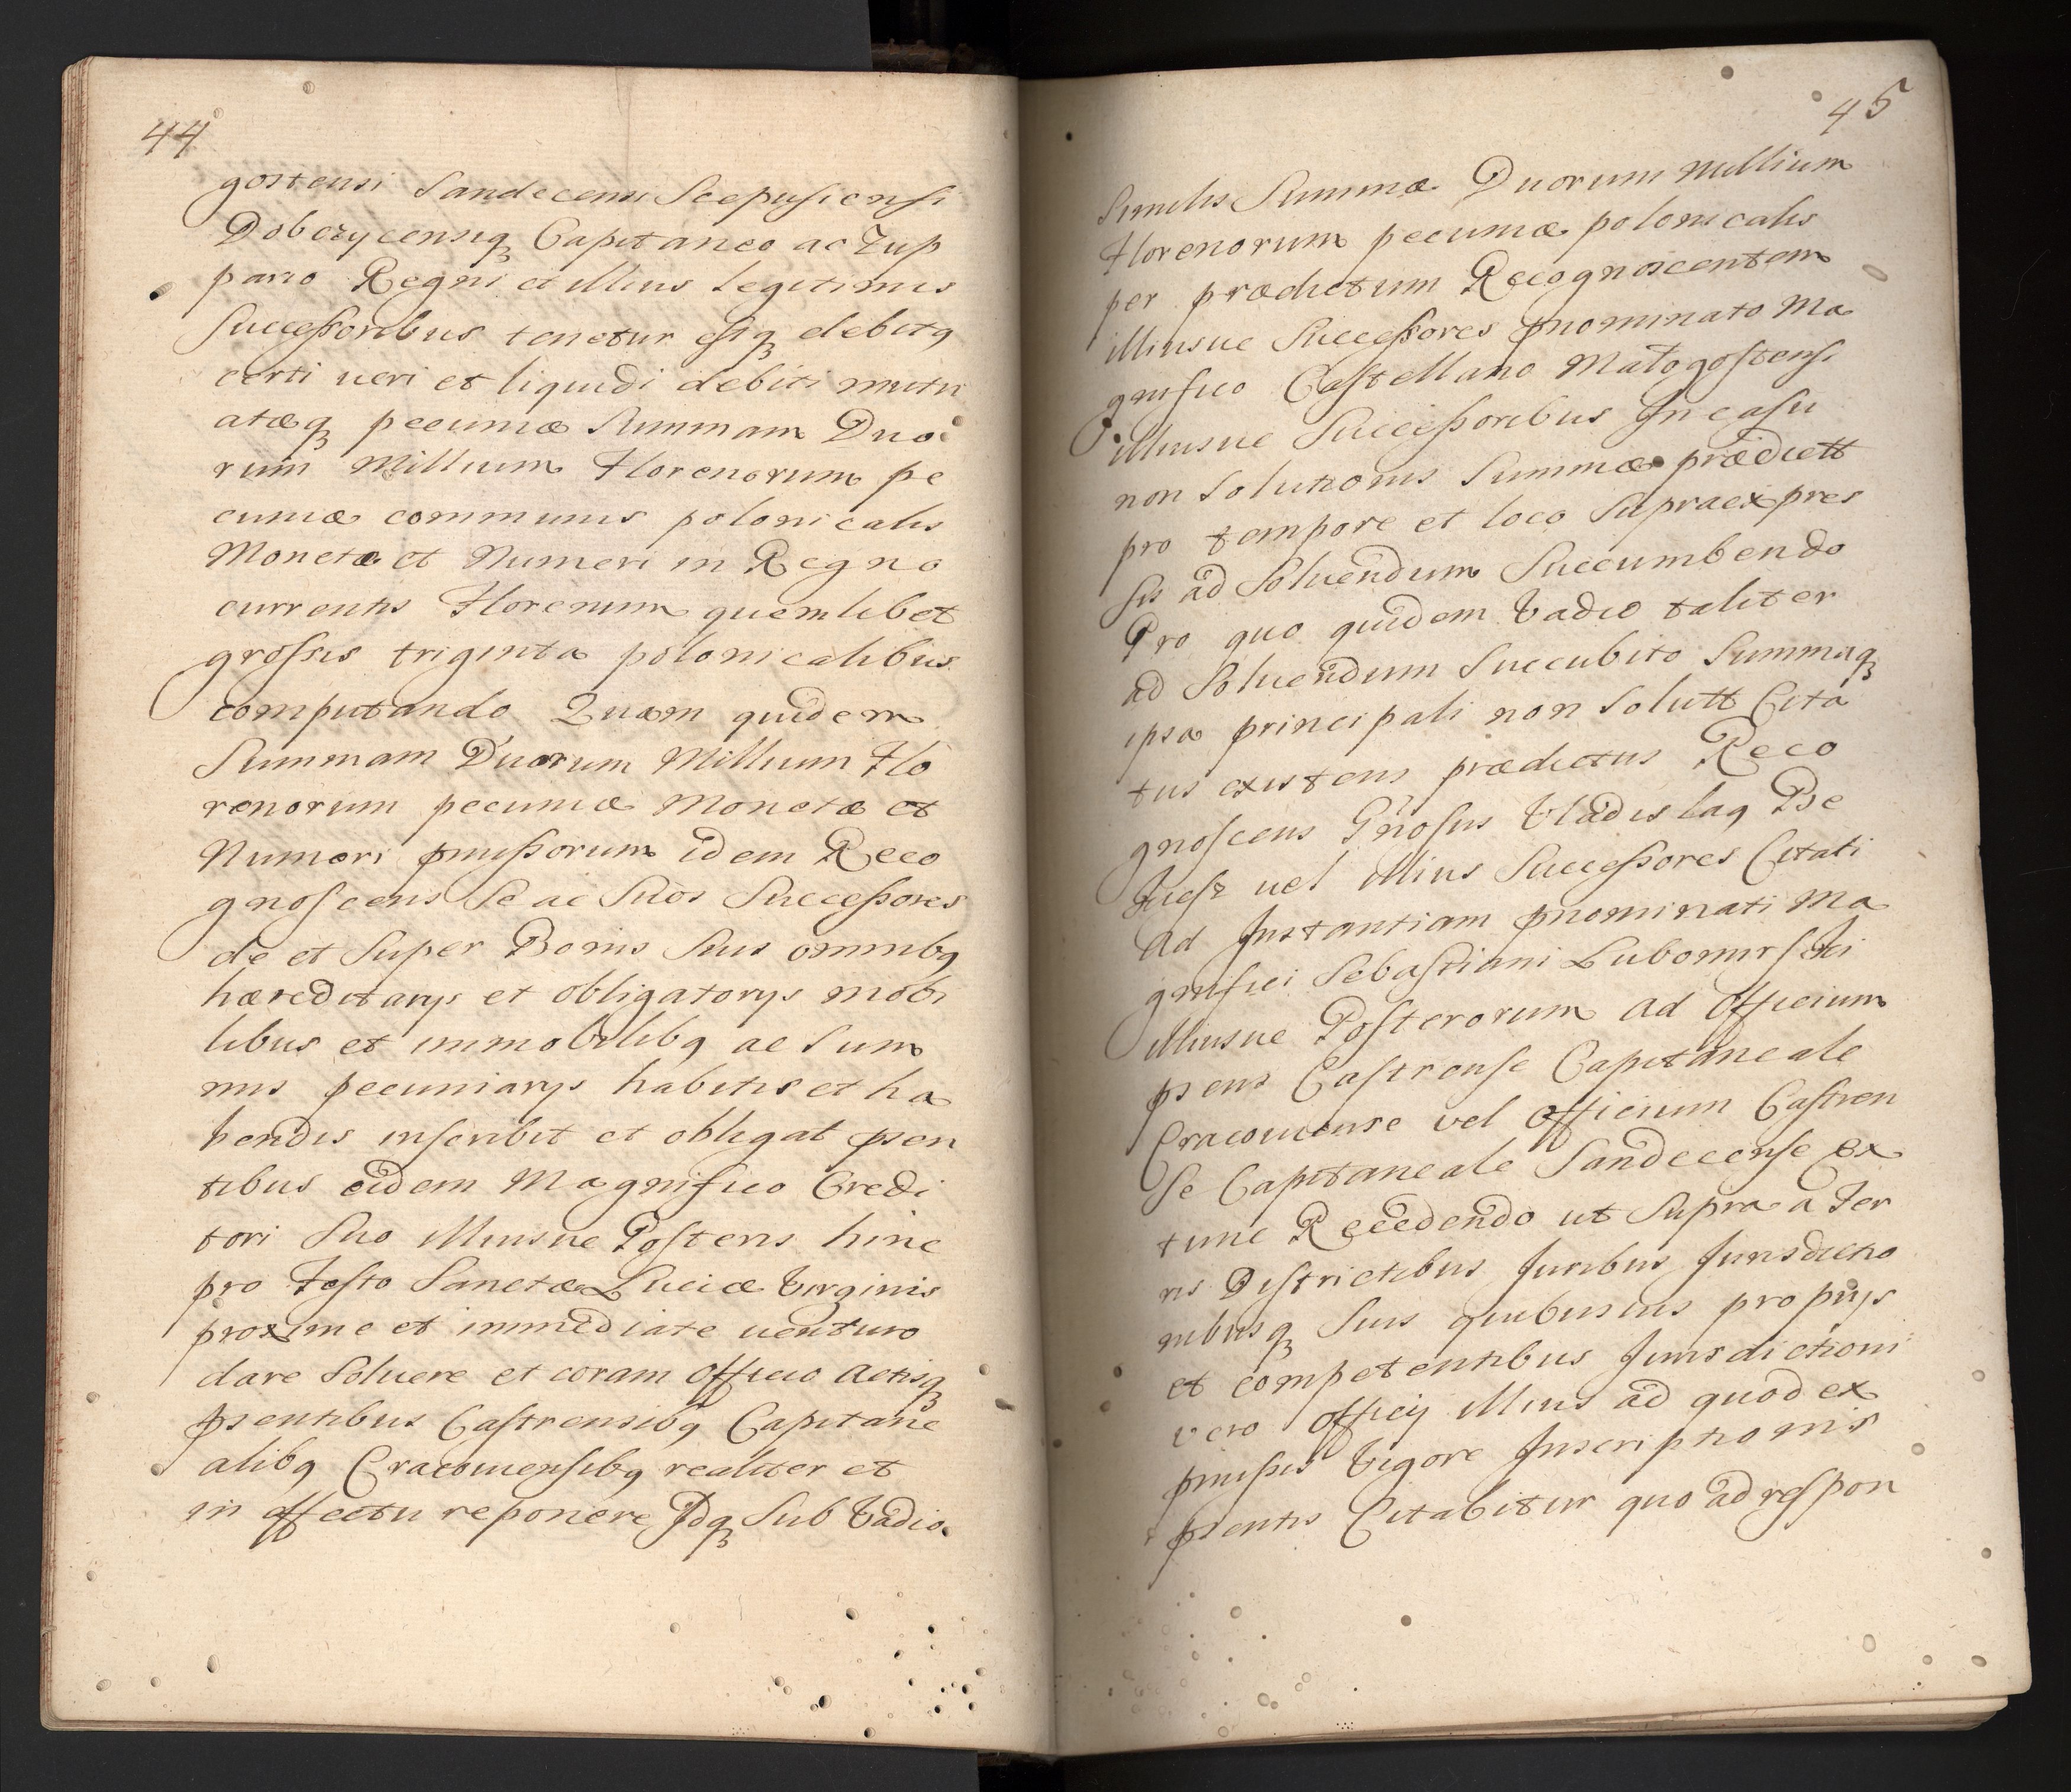 44
gostensi Sandecensi Scepusiensi
Dobczycensiq Capitaneo ac Zup
pario Regni et illius legitimis
Successoribus tenetur estq debitq
certi ueri et liquidi debiti mutu
atæq pecuniæ Summam Duo
rum Millium Florenorum pe
cuniæ communis polonicalis
Monetæ et Numeri in Regno
currentis Florenum quemlibet
grossis triginta polonicalibus
computando Quam quidem
Summam Duorum Millium Flo
renorum pecuniæ Monetæ et
Numeri pmissorum idem Reco
gnoscens Se ac Suos Successores
de et Super Bonis Suis omnibq
hæreditarys et obligatorys mobi
libus et immobilibq ac Sum
mis pecuniarys habitis et ha
bendis inscribit et obligat psen
tibus eidem Magnifico Credi
tori Suo illiusue Posteris hinc
pro Festo Sanctæ Luciæ Virginis
proxime et immediate uenturo
dare Soluere et coram Officio Actisq
psentibus Castrensibq Capitane
alibq Cracouiensibq realiter et
in effectu reponere Idq Sub Vadio
45
Similis Summæ Duorum Millium
Florenorum pecuniæ polonicalis
per prædictum Recognoscentem
illiusue Successores pnominato Ma
gnifico Castellano Małogostensi
illiusue Successoribus In casu
non Solutionis Summæ prædictt
pro tempore et loco Supraexpres
sis ad Soluendum Succumbendo
Pro quo quidem Vadio taliter
ad Soluendum Succubito Summaq
ipsa principali non Solutt Cita
tus existens prædictus Reco
gnoscens Gnosus Vladislaq Pse
Iucsz uel illius Successores Citati
Ad Instantiam pnominati Ma
gnifici Sebastiani Lubomirskei
illiusue Posterorum Ad Officium
psens Castrense Capitaneale
Cracouiense vel Officium Castren
Se Capitaneale Sandecense Ex
tunc Recedendo ut Supra a Ter
ris Districtibus Iuribus Iurisdictio
nibusq Suis quibusuis proprys
et competentibus Iurisdictioni
vero Officij illius ad quod ex
pmissis Vigore Inscriptionis
psentis Citabitur quo ad respon